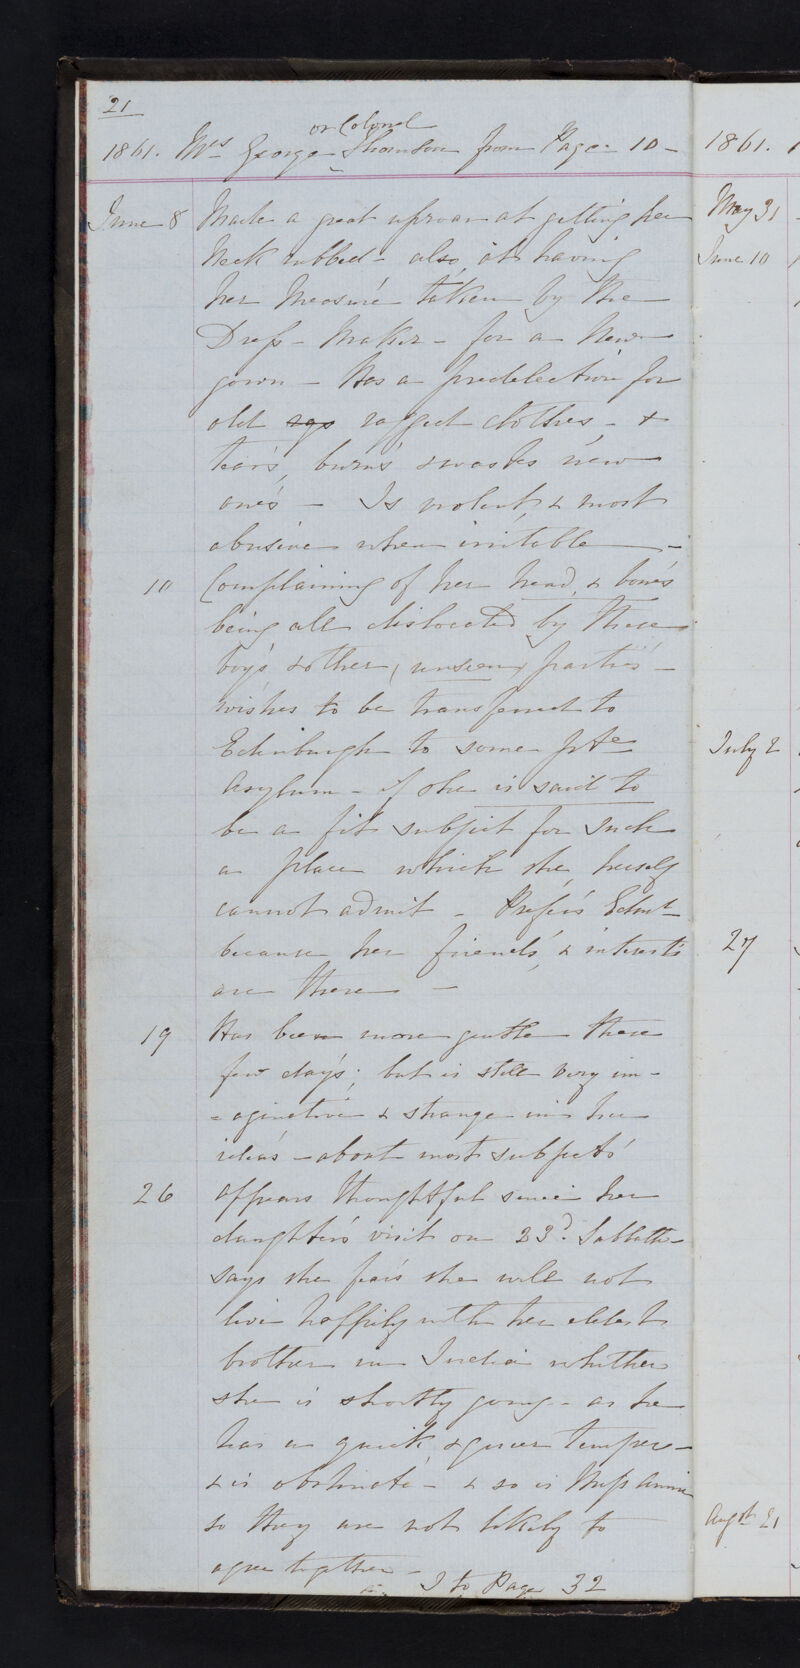 21
or Colonel
1861. Mrs George Thomson from Page 10 -
June 8 Made a great uproar at getting her
neck rubbed - also at having
her measure taken by the
Dress - Maker - for a New
gown - Has a predelection for
old rags ragged clothes - &
tears, burns & wastes new
ones - Is violent, & most
abusive when irritable -
10 Complaining of her head, & bones
being all dislocated by these
boys & other, unseen, parties -
wishes to be transferred to
Edinburgh to some pte
Asylum - if she is said to
be a fit subject for such
a place which she herself
cannot admit - Prefers Edinr
because her friends, & interests
are there -
19 Has been more gentle these
few days; but is still very im-
=aginative & strange in her
ideas - about most subjects
26 Appears thoughtful since her
daughters visit on 23d. Sabbath -
says she fears she will not
live happily with her eldest
brother in India whither
she is shortly going - as he
has a quick & queer temper -
& is obstinate - & so is Miss Annie
so they are not likely to
agree together -
To Page 32
1861.
May 31
June 10
July 2
27
Augst 21